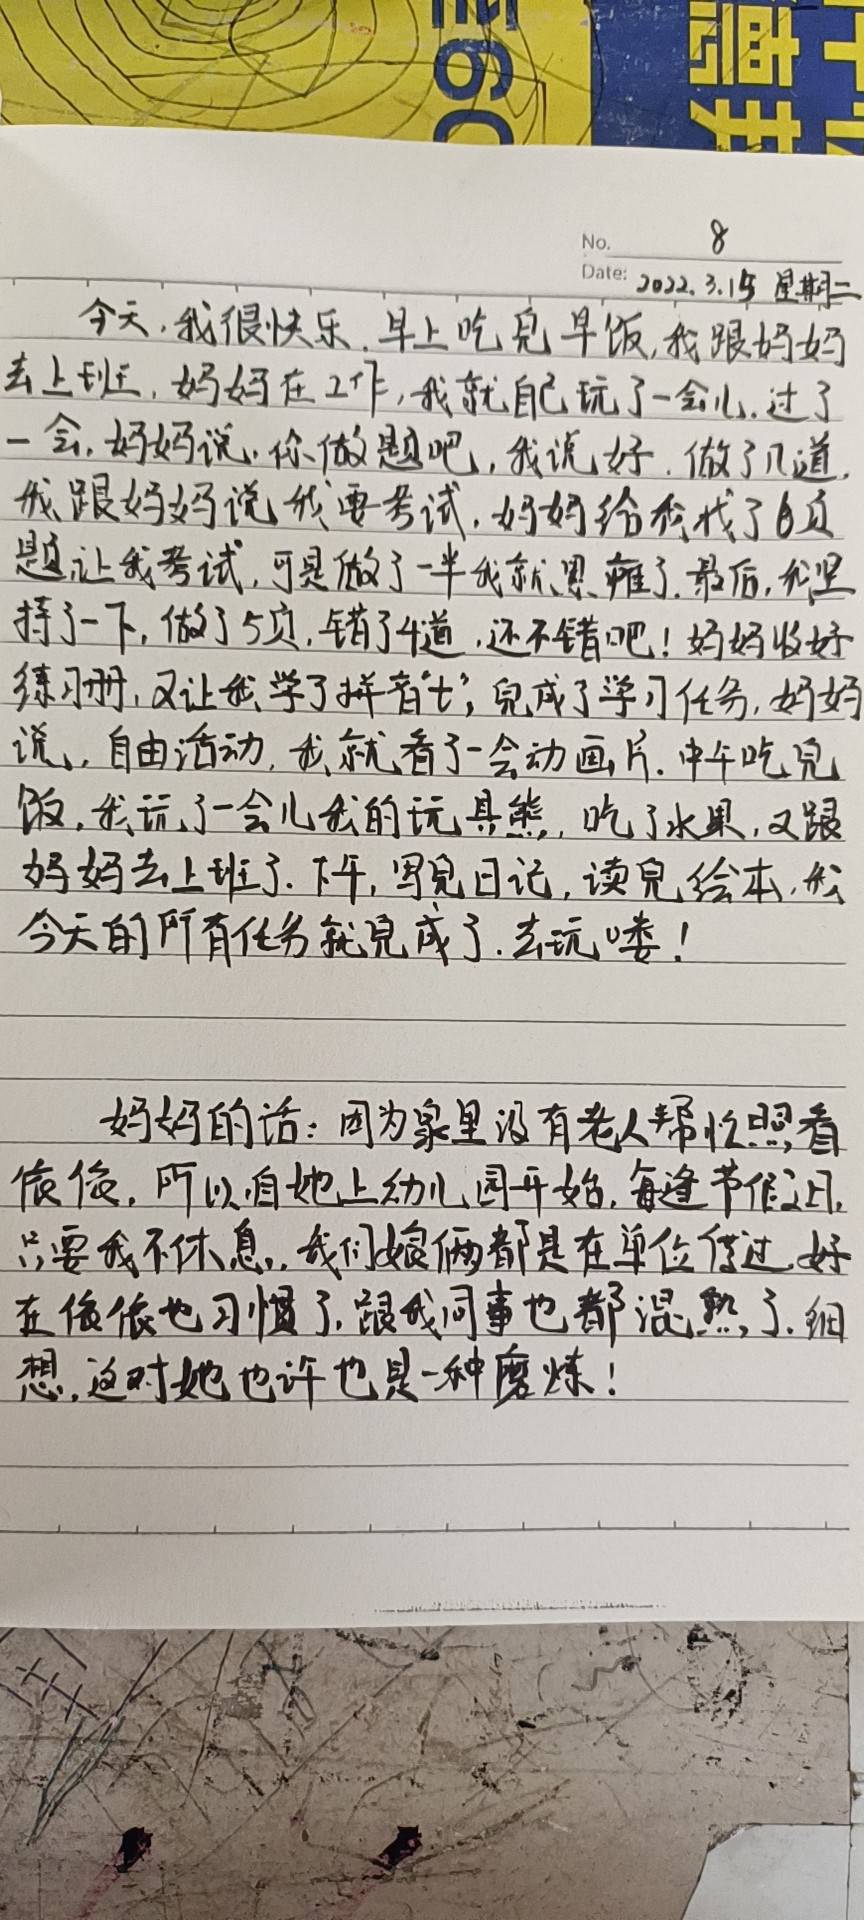 No. 8
Date: 2022.3.15 星期二
今天,我很快乐.早上吃完早饭,我跟妈妈
去上班,妈妈在工作,我就自己玩了一会儿.过了
一会,妈妈说,你做题吧,我说好.做了几道,
我跟妈妈说我要考试,妈妈给我找了6页
题,让我考试,可是做了一半我就累瘫了.最后,我坚
持了一下,做了5页,错了4道,还不错吧!妈妈收好
练习册,又让我学了拼音“t”,完成了学习任务,妈妈
说,自由活动,我就看了一会动画片.中午吃完
饭,我玩了一会儿我的玩具熊,吃了水果,又跟
妈妈去上班了.下午,写完日记,读完绘本,我
今天的所有任务就完成了.去玩喽!
妈妈的话:因为家里没有老人帮忙照看
依依,所以自她上幼儿园开始,每逢节假日,
只要我不休息,我们娘俩都是在单位度过,好
在依依也习惯了,跟我同事也都混熟了.细
想,这对她也许也是一种磨炼!